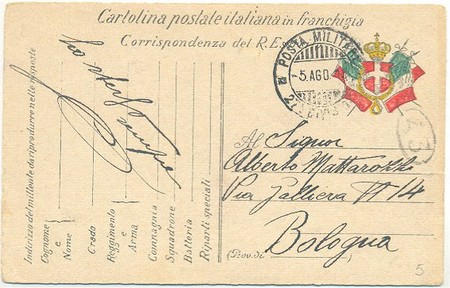 Cartolina postale italiana in franchigia
Corrispondenza del R.E
POSTA MILITARE
-5.AGO
Al Signor
Alberto Mattarozzi
Via Galliera N 14
Bologna
(Prov. di
Indirizzo del mittente da riprodurre nelle risposte
Cognome e Nome
Grado
Reggimento e Arma
Compagnia
Squadrone
Batteria
Riparti speciali
5